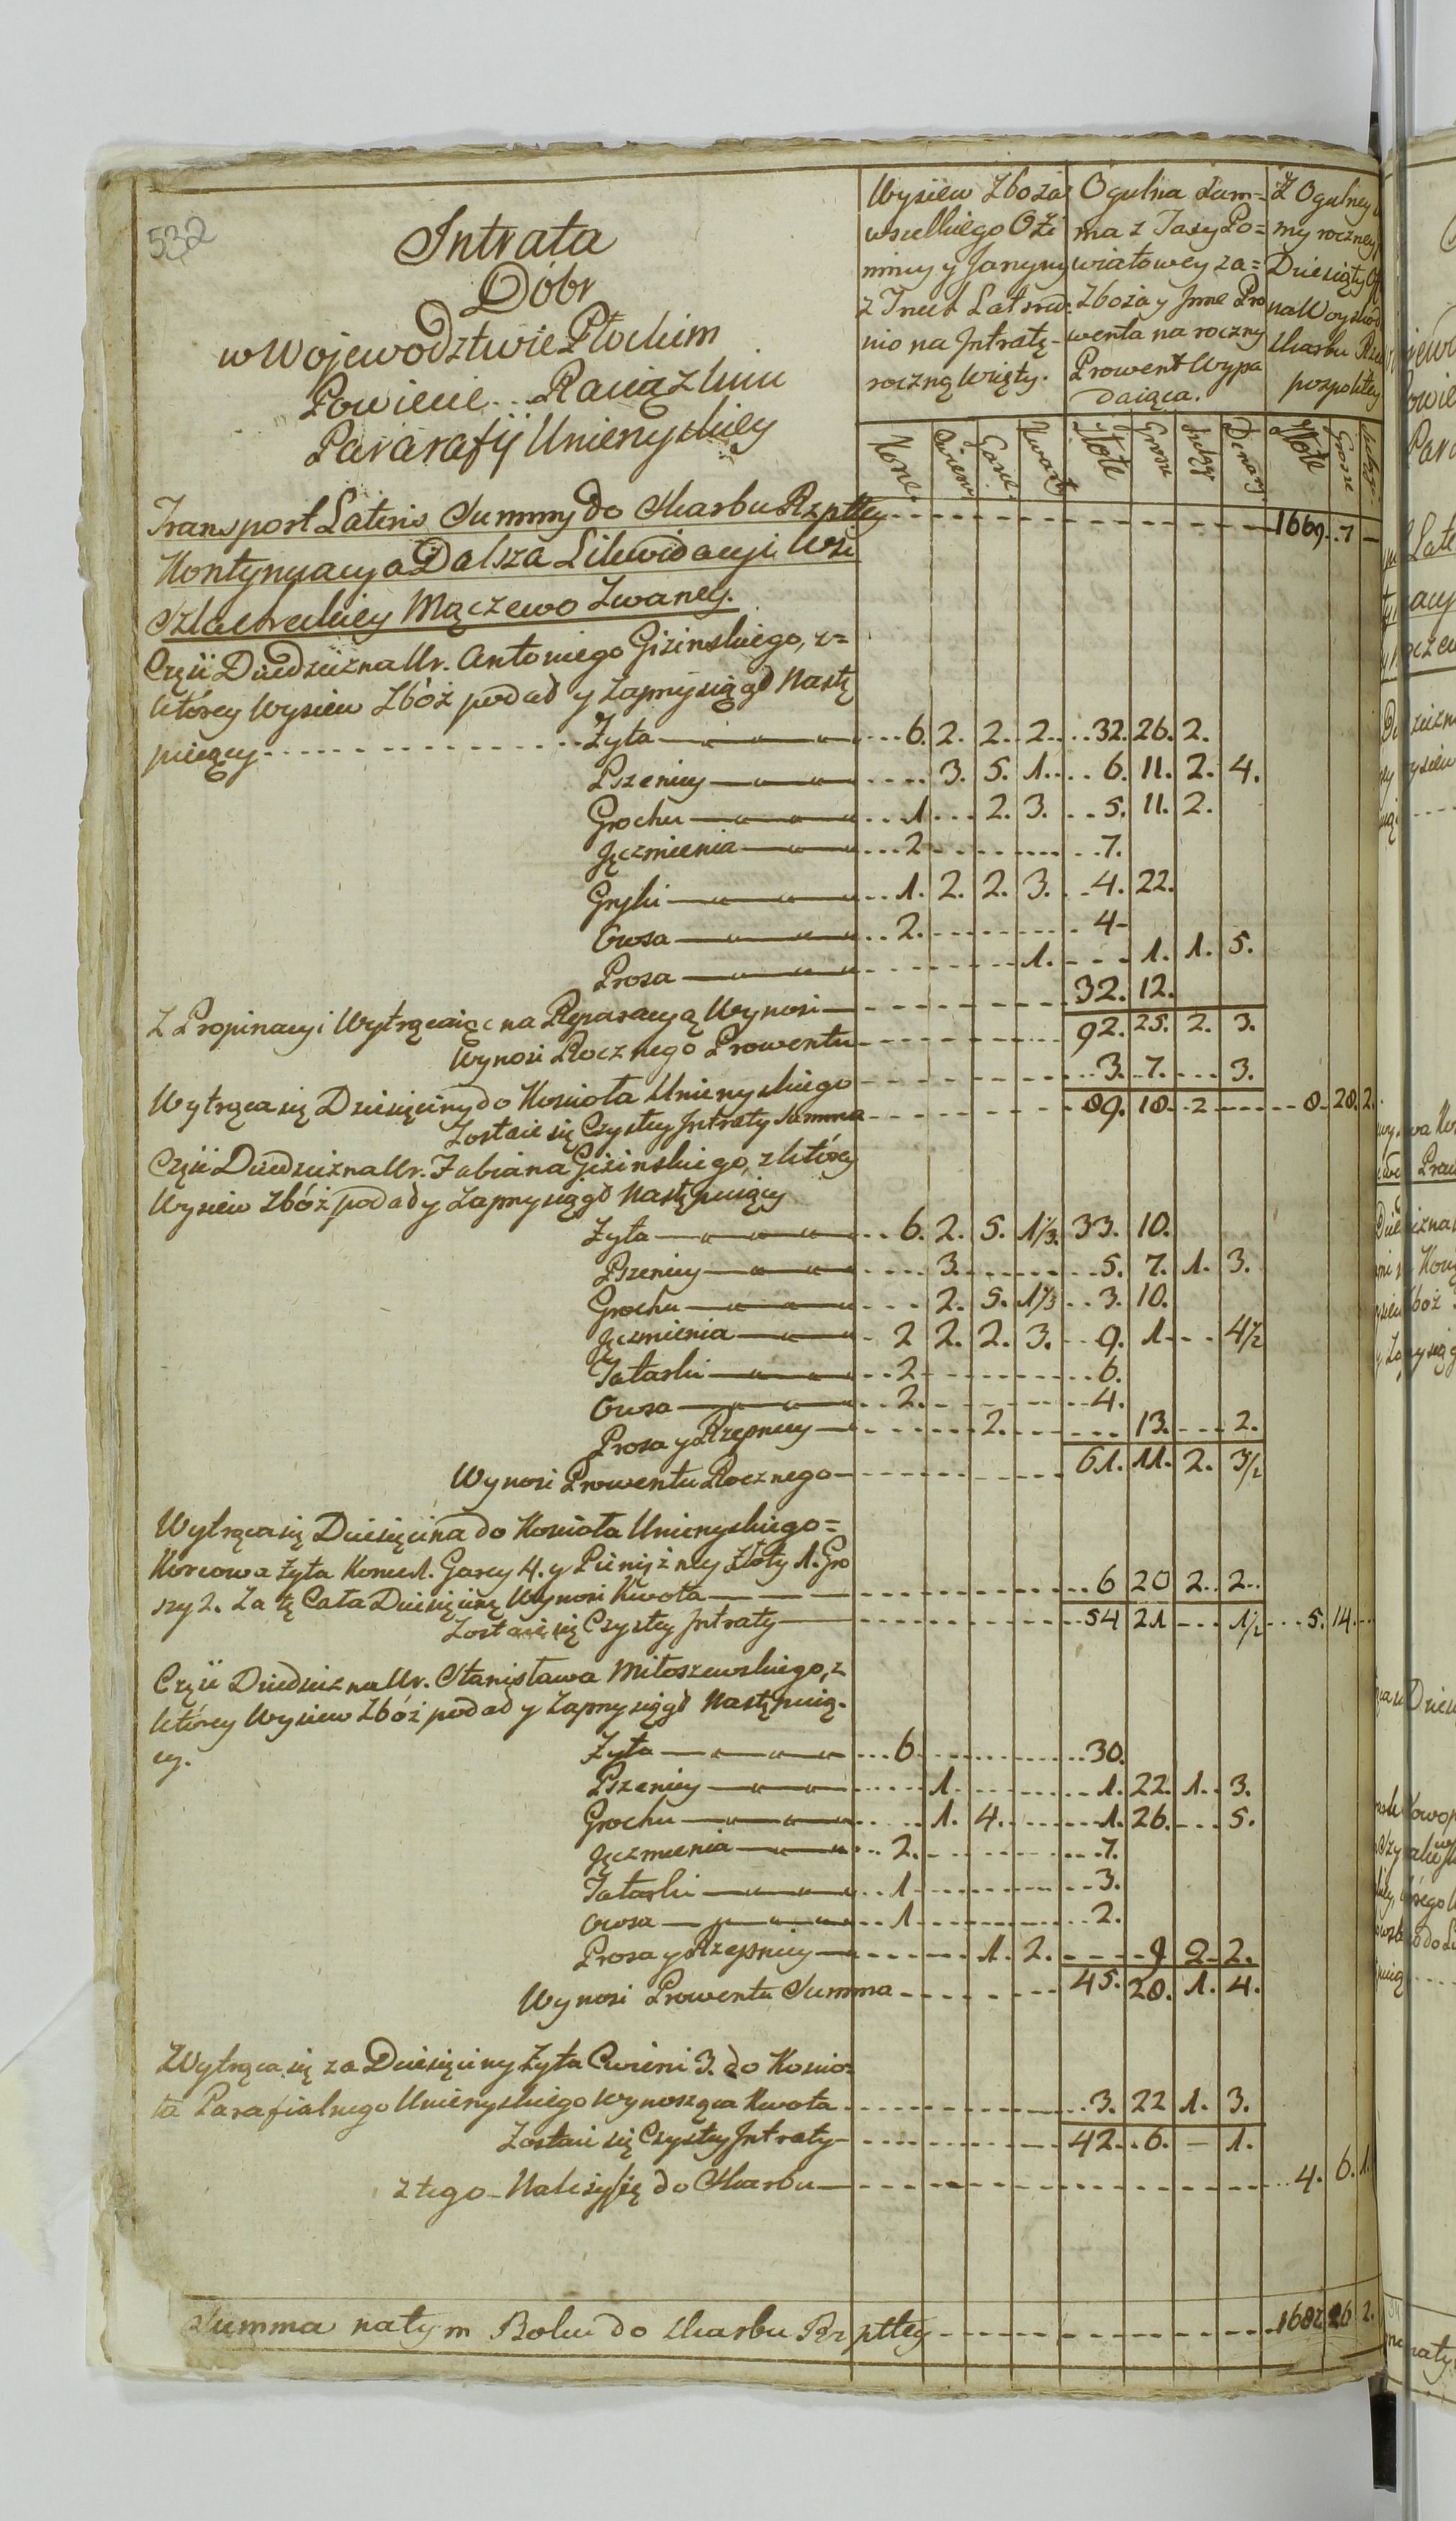 532
Intrata
Dóbr
w Wojewodztwie Płockim
Powiecie .. Raciązkim
Pararafÿ Unierzyskiey
Wysiew Zboża
wszelkiego Ozi
miny y Jarzyny
z Trzech Lat srzed:
nio na Jntratę -
roczną wzięty.
Ogulna Sum=
ma z Taxy Po=
wiatowey za=
Zboża y Jnne Pro
wenta na roczny
Prowent wypa
daiąca.
Z Ogulney
my roczney
Dziesiąty
na Wyzwód
Skarbu Rze
pospolitey
Korce. Cwierci Garce. Kwart Złote Grosze Szelągi Denary Złote Grosze Szelągi
Transport Lateris Summy do Skarbu Rzpttey - - - 1669. . 7 -
Kontynuacya Dalsza Likwidacyi Wsi
Szlachreckiey Mączewo Zwaney.
Częśi Dziedziczna Ur. Antoniego Gizinskiego, z=
którey Wysiew Zbóż podad y Zaprzysiągł Nastę
puiący - - - Zyta - - - 6. 2. 2. 2. . . 32. 26. 2.
Pszenicy - - - 3. 5. 1. . . 6. 11. 2. 4.
Grochu - - - 1 . . . 2. 3. . . 5. 11. 2.
Jęczmienia - - - 2 - - - 7.
Gryki - - - 1. 2. 2. 3. . 4. 22.
Owsa - - - 2. - - - 4 -
Prosa - - - 1. - - - 1. 1. 5.
Z Propinacyi Wytrącaiąc na Reparacyą Wynosi - - - 32. 12.
Wynosi Rocznego Prowentu - - - 92. 25. 2. 3.
Wytrąca się Dziesięciny do Koscioła Unierzyskiego - - - 3. 7. . . . 3.
Zostaie się Czystey Jntraty Summa - - - 89. 18. 2 - - - 8. 28. 2.
Częśi Dziedziczna Ur. Fabiana Gizinskiego, z którey
Wysiew Zbóż podad y Zaprzysiągł Nastę puiący
Zyta - - - 6. 2. 5. 1 1/3. 33. 10.
Pszenicy - - - 3. - - - 5. 7. 1. 3.
Grochu - - - 2. 5. 1 1/3 . . 3. 10.
Jęczmienia - - - 2 2. 2. 3. . . 9. 1 - - 4 1/2
Tatarki - - - 2 - - - 6.
Owsa - - - 2. - - - 4.
Prosa y Rzepnicy - - - 2. - - - 13. - - - 2.
Wynosi Prowentu Rocznego - - - 61. 11. 2. 3 1/2
Wytrąca się Dziesięcina do Kosciola Unierzyskiego =
Korcowa Zyta Korzec 1. Garcy 4. y Pieniężney Złoty 1. Gro
szy 2. Za tę Cała Dziesięcinę Wynosi Kwota - - - 6 20 2. . 2 . .
Zostaie się Czystey Jntraty - - - 54 21 - - - 1 1/2 - - - 5. 14. - -
Częśi Dziedziczna Ur. Stanisława Miłoszewskiego, z
którey Wysiew Zbóż podad y Zaprzysiągł Nastę puią.
cy.
Zyta - - - 6 - - - 30.
Pszenicy - - - 1 - - - 1. 22. 1. . 3.
Grochu - - - 1. 4. - - - 1. 26. - - - 5.
Jęczmienia - - - 2. - - - 7.
Tatarki - - - 1 - - - 3.
Owsa - - - 1 - - - 2.
Prosa y Rzepnicy - - - 1. 2. - - - 9 2. 2.
Wynosi Prowentu Summa - - - 45. 28. 1. 4.
Wytrąca się za Dziesięciny Zyta Cwierci 3. do Koscio=
ła Parafialnego Unierzyskiego wynosząca Kwota - - - 3. 22 1. 3.
Zostaie się Czystey Jntraty - - - 42. . 6. - 1.
z tego Należy się do Skarbu - - - 4. 6. 1.
Summa na tym Boku do Skarbu Rzpttey - - - 1687. 26 2.